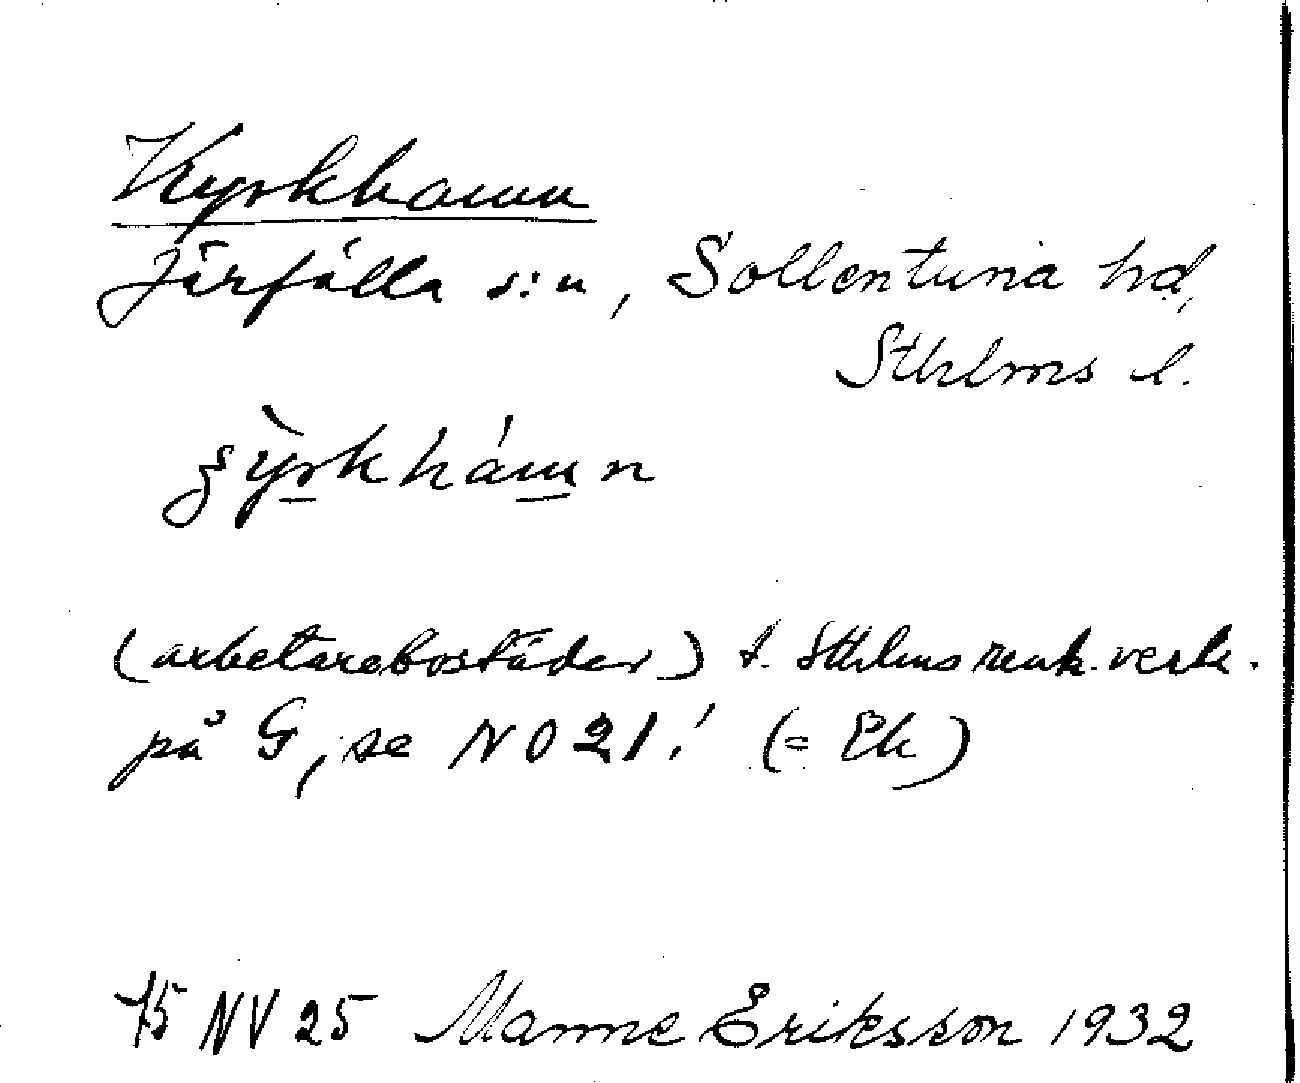 Kyrkhamn
Järfälla s:n, Sollentuna hd,
Sthlms l.
ʂy̏rkhámn
(arbetarebostäder) t. Sthlms renh. verk.
på G, se NO 21! (= Ek)
75 NV 25 Manne Eriksson 1932